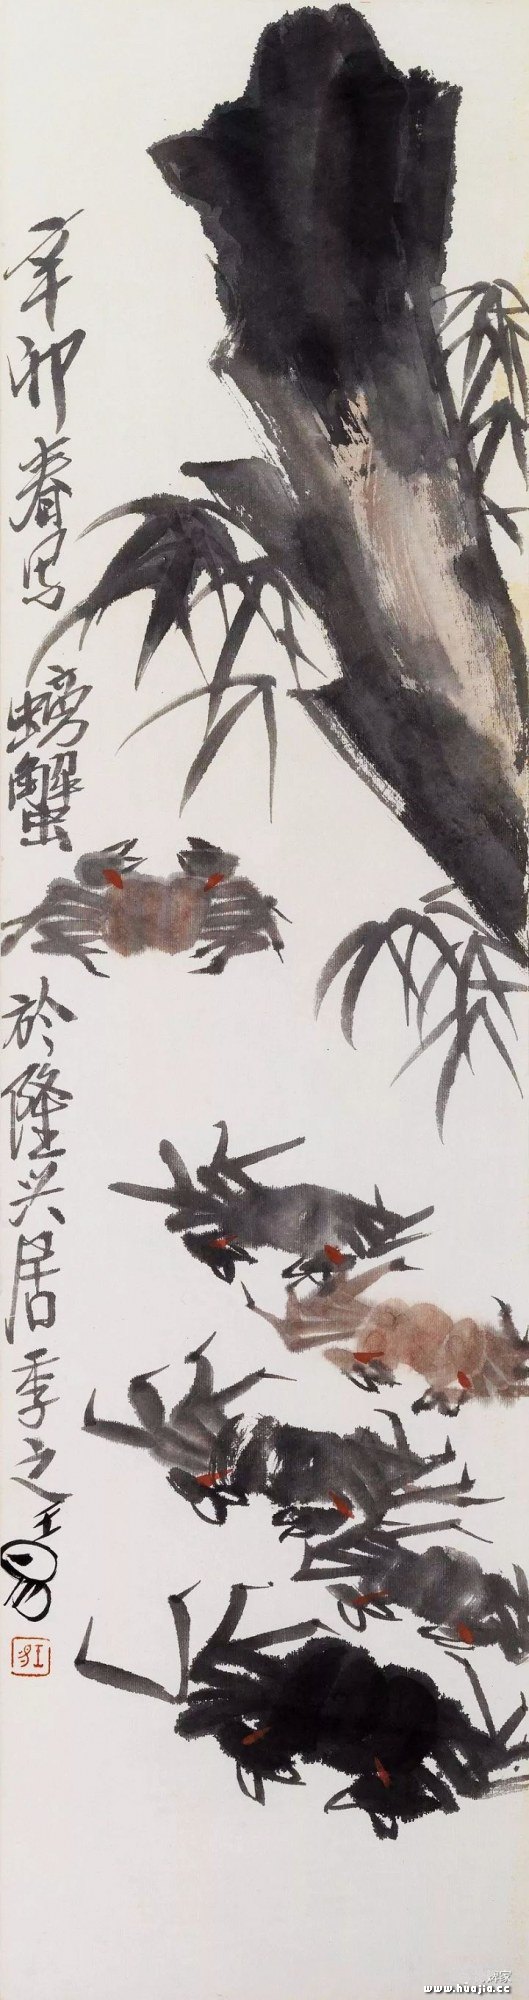 辛卯春写螃蟹於隆兴居季之王易
www.huajia.cc